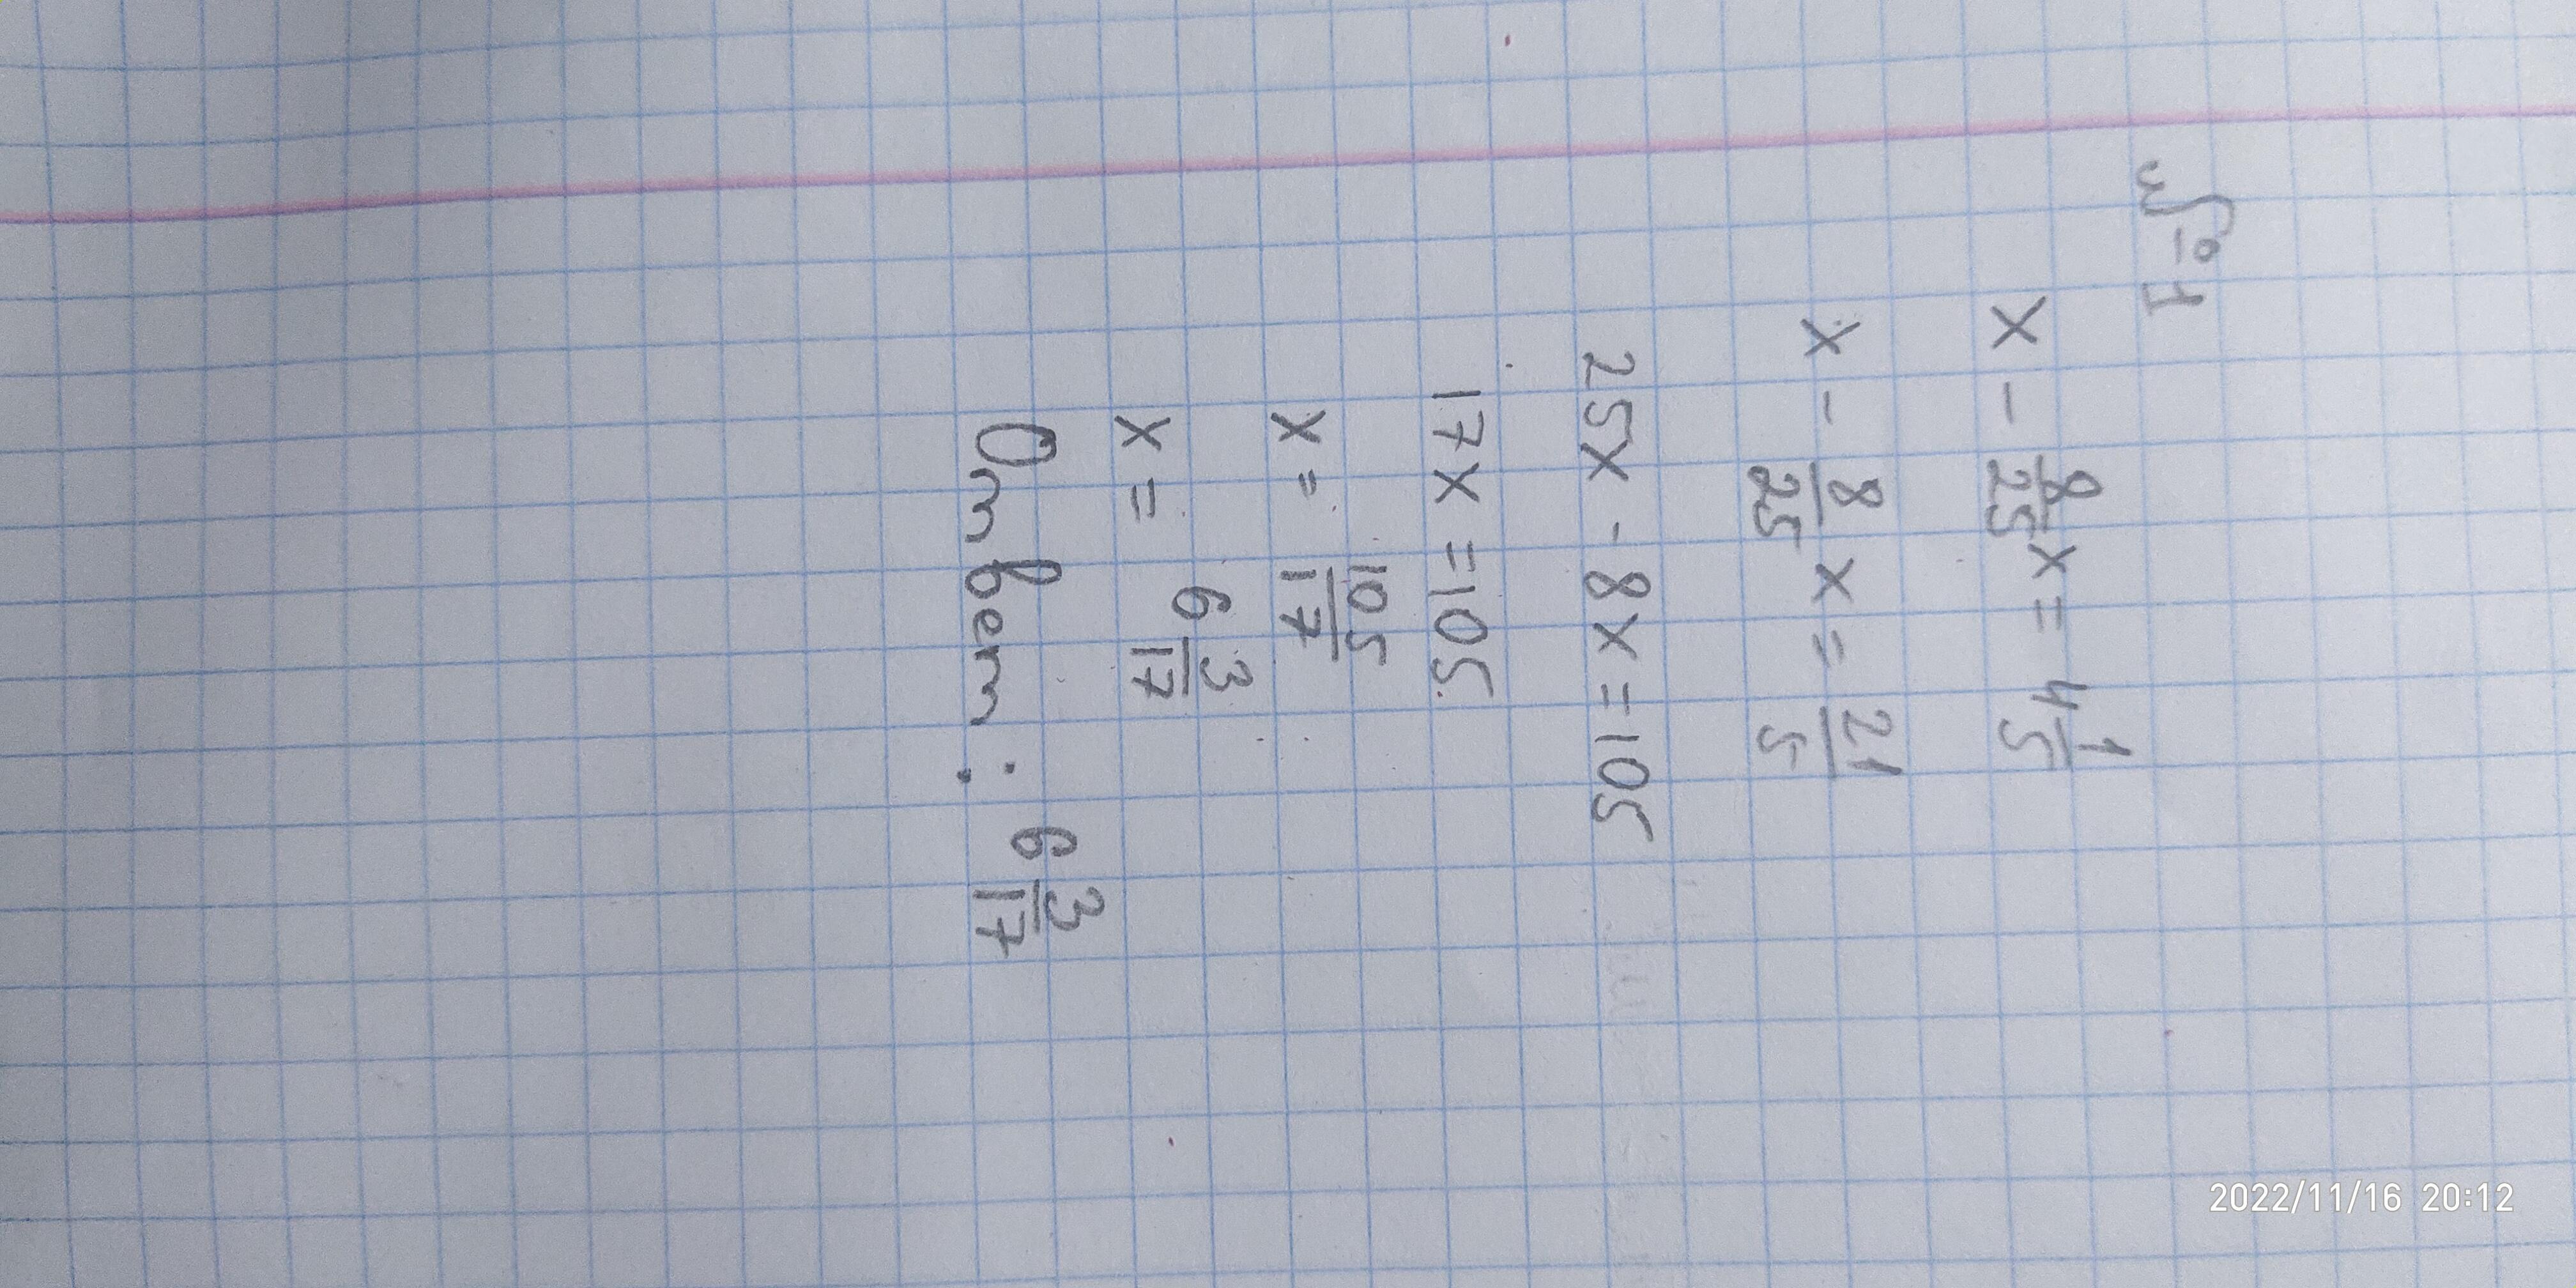 №1
x - 8/25 x = 4 1/5
x - 8/25 x = 21/5
25x - 8x = 105
17x = 105
x = 105/17
x = 6 3/17
Ответ: 6 3/17
2022/11/16 20:12